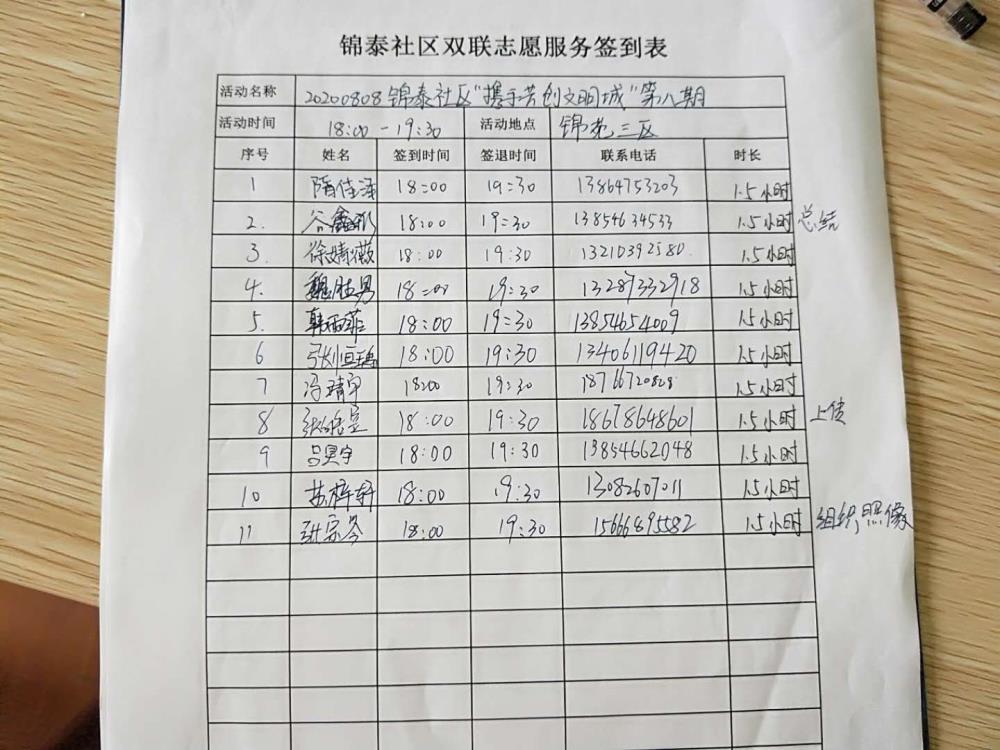 锦泰社区双联志愿服务签到表
活动名称 20200808锦泰社区"携手共创文明城"第八期
活动时间 18:00-19:30 活动地点 锦苑三区
序号 姓名 签到时间 签退时间 联系电话 时长
1 隋佳泽 18:00 19:30 13864753203 1.5小时
2. 谷鑫 18:00 19:30 13854634533 1.5小时 总结
3. 徐婧薇 18:00 19:30 13210392580. 1.5小时
4. 魏胜男 18:00 19:30 13287332918 1.5小时
5. 韩雨菲 18:00 19:30 13854654009 1.5小时
6 张恒瑞 18:00 19:30 13406119420 1.5小时
7 冯靖宇 18:00 19:30 18766720828 1.5小时
8 张悟空 18:00 19:30 18678648601 1.5小时 上传
9 吕昊宇 18:00 19:30 13854662048 1.5小时
10 苏梓轩 18:00 19:30 13082607011 1.5小时
11 张宗岑 18:00 19:30 15666895582 1.5小时 组织,照像